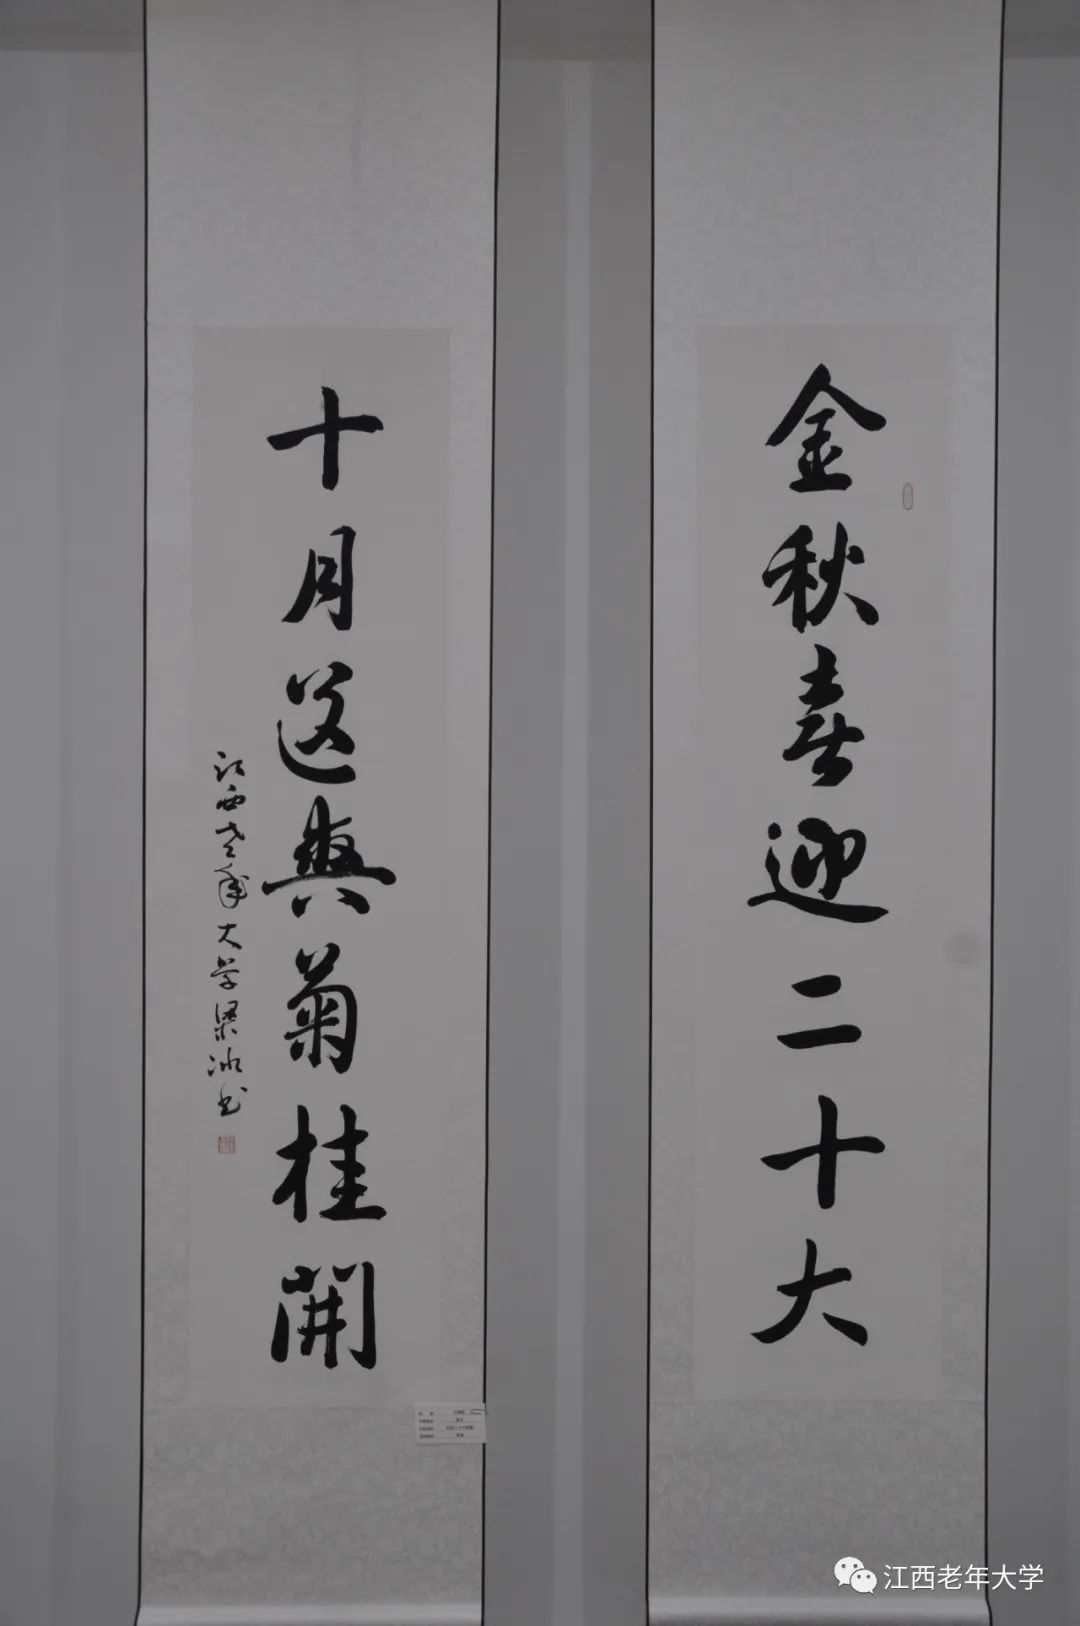 金秋喜迎二十大
十月送與菊桂開
江西老年大学梁冰书
江西老年大学